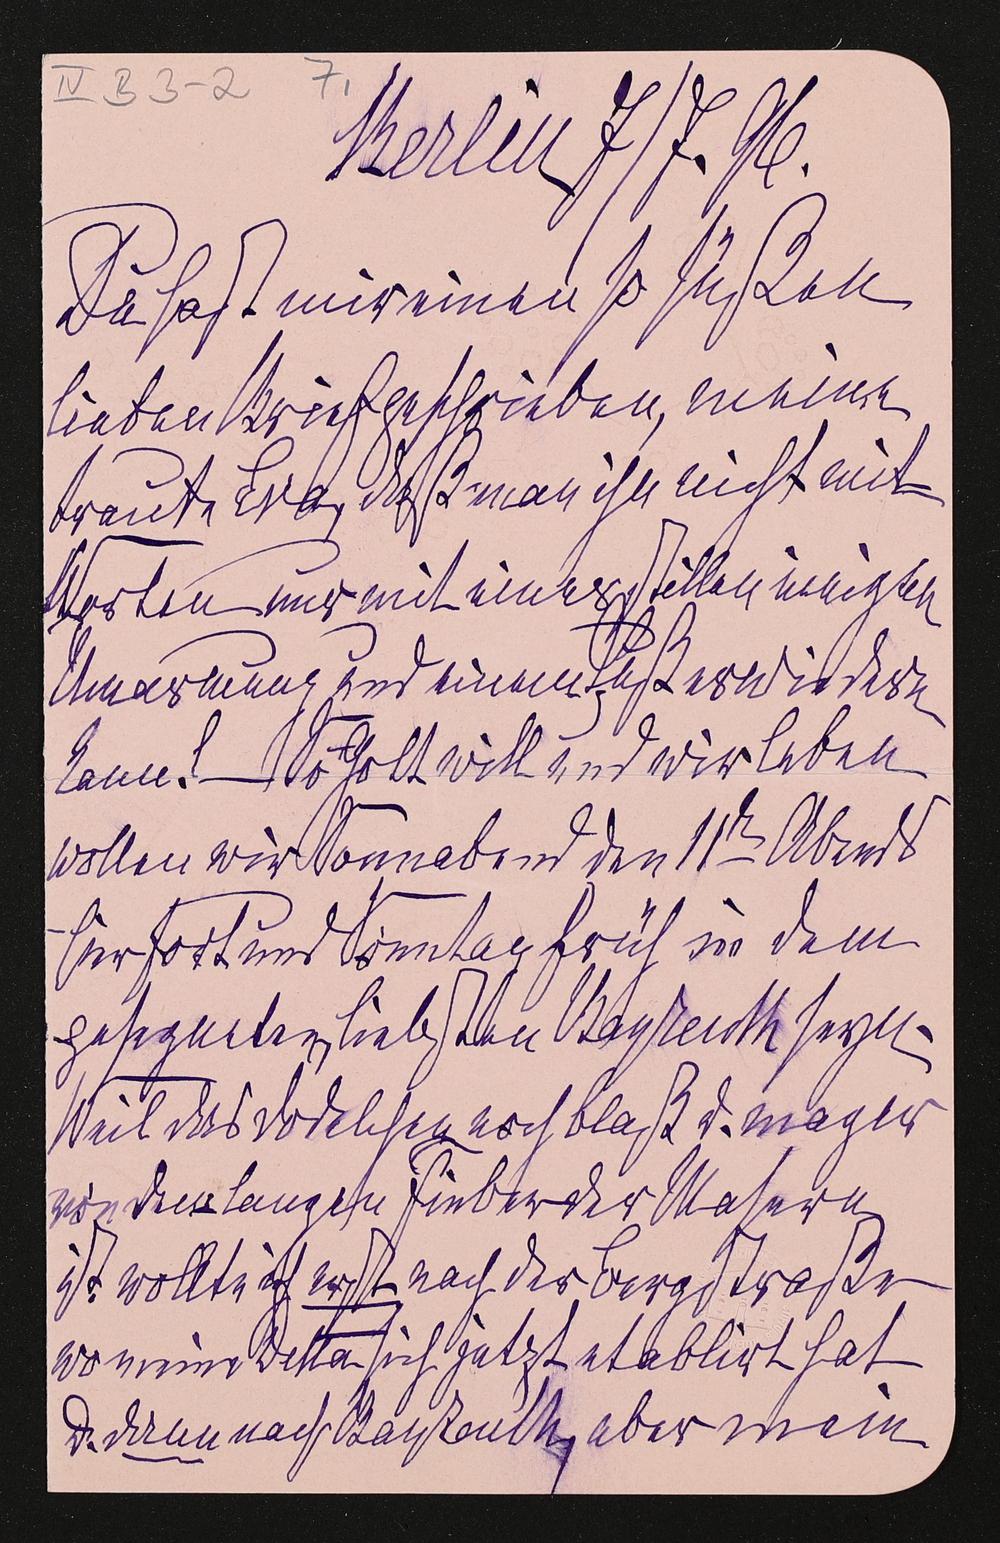 IV B 3-2 7,
Berlin 7/7. 96.
Du hast mir einen so süßen
lieben Brief geschrieben, meine
traute Eva, daß man ihn nicht mit
Worten nur mit einer stillen innigen
Umarmung und einem Kuß erwiedern
kann! — So Gott will und wir leben
wollen wir Sonnabend den 11ten Abends
hier fort und Sonntag früh in dem
gesegneten, liebsten Bayreuth seyn.
Weil das Dodelchen noch blaß u. mager
von dem langen Fieber der Masern
ist, wollte ich erst nach der Bergstraße
wo meine Della sich jetzt etablirt hat
u. dann nach Bayreuth, aber mein